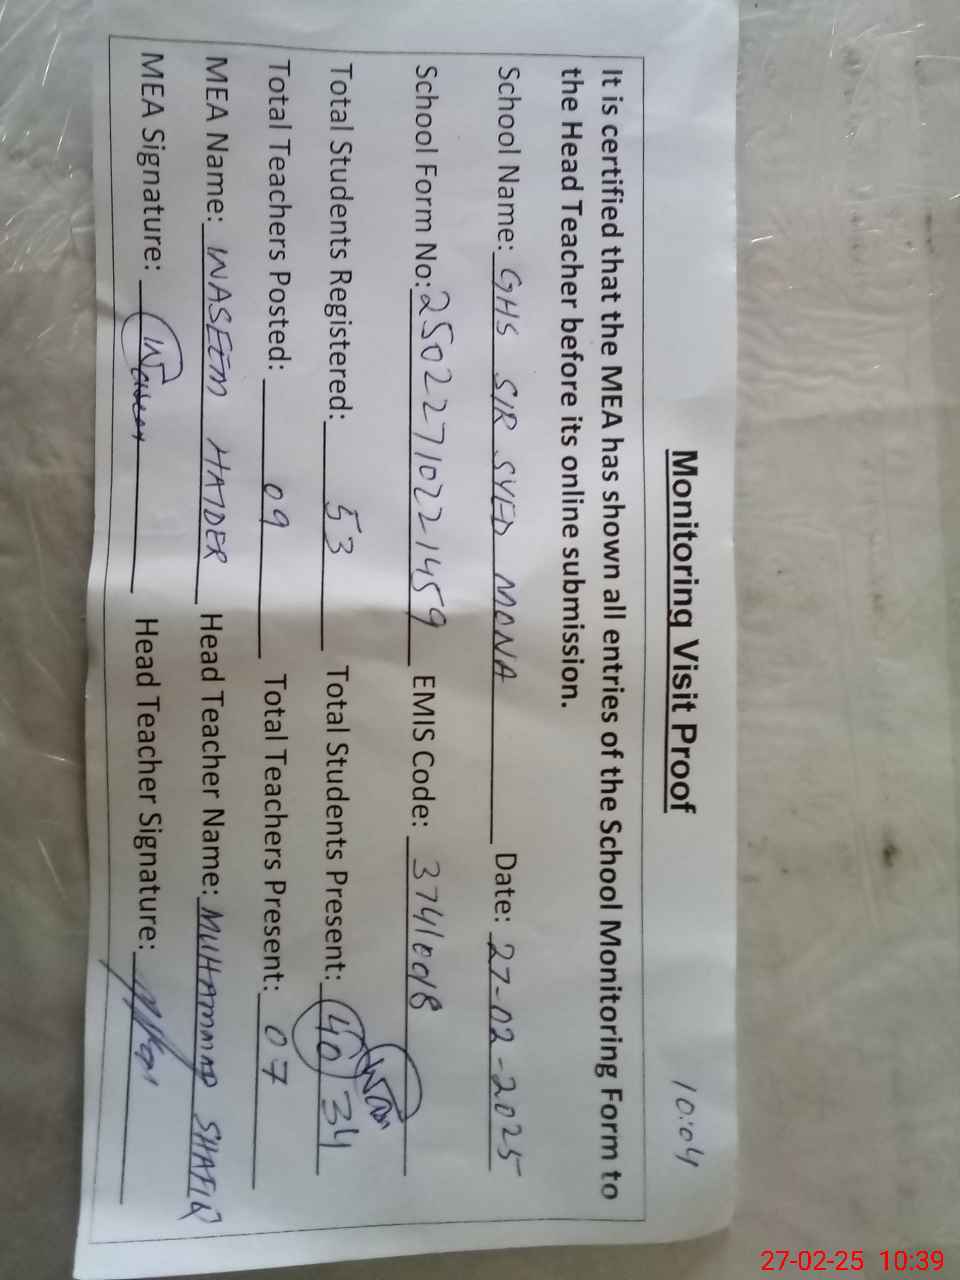 10:04
Monitoring Visit Proof
It is certified that the MEA has shown all entries of the School Monitoring Form to
the Head Teacher before its online submission.
School Name: GHS SIR SYED MONA Date: 27-02-2025
School Form No: 25022710221459 EMIS Code: 37410018
Total Students Registered: 53 Total Students Present: 40 34
Total Teachers Posted: 09 Total Teachers Present: 07
MEA Name: WASEEM HAIDER Head Teacher Name: MUHAMMAD SHAFIQ
MEA Signature: Waseem Head Teacher Signature:
27-02-25 10:39